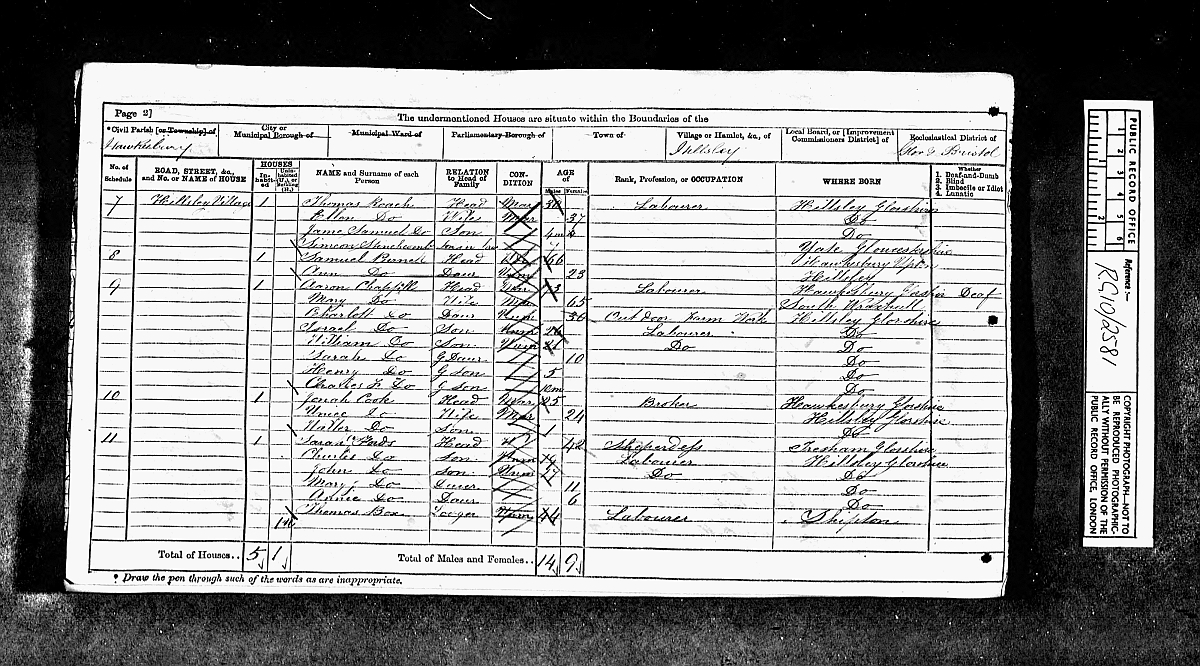 Page 2]
The undermentioned Houses are situate within the Boundaries of the
* Civil Parish [or Township] of
Hawkesbury
City or Municipal Borough of
Municipal Ward of
Parliamentary Borough of
Town of
Village or Hamlet, &c., of
Hillsley
Local Board, or [Improvement Commissioners District] of
Ecclesiastical District of
Glos & Bristol
No. of Schedule
ROAD, STREET, &c., and No. or NAME of HOUSE
HOUSES
Inhabited
Uninhabited (U.), or Building (B.)
NAME and Surname of each Person
RELATION to Head of Family
CONDITION
AGE of
Males
Females
Rank, Profession, or OCCUPATION
WHERE BORN
Whether
1. Deaf-and-Dumb
2. Blind
3. Imbecile or Idiot
4. Lunatic
7 Hillsley Village 1 Thomas Roach Head Mar Labourer Hillsley
Ellen Do Wife Mar 37 Do
Samuel Do Son Do
Simeon Yate Gloucestershire
8 1 Samuel Head 66 Hawkesbury Upton
Ann Do Daur Unm 23 Hillsley
9 1 Aaron Head Mar Labourer Hawkesbury Deaf
Mary Do Wife Mar 65 South Wraxhall
Do Daur 36 Out door Farm Work Hillsley
Israel Do Son Labourer Do
William Do Son Unm Do Do
Sarah Do G Daur 10 Do
Henry Do G Son 5 Do
Charles Do G Son 10m Do
10 1 Cook Head Mar 25 Hawkesbury
Do Wife Mar 24 Hillsley
Do Son 1 Do
11 1 Sarah Head 42 Tresham
Charles Do Son Unm 19 Labourer Hillsley
John Do Son Unm 17 Do Do
Mary Do Daur 11 Do
Annie Do Daur 6 Do
Thomas Box Lodger Unm 44 Labourer Shipton
Total of Houses.. 5 1 Total of Males and Females.. 14 9
* Draw the pen through such of the words as are inappropriate.
PUBLIC RECORD OFFICE
1 2 3 4 5 6
1 2
Reference:—
RG10/2581
COPYRIGHT PHOTOGRAPH—NOT TO BE REPRODUCED PHOTOGRAPHICALLY WITHOUT PERMISSION OF THE PUBLIC RECORD OFFICE, LONDON